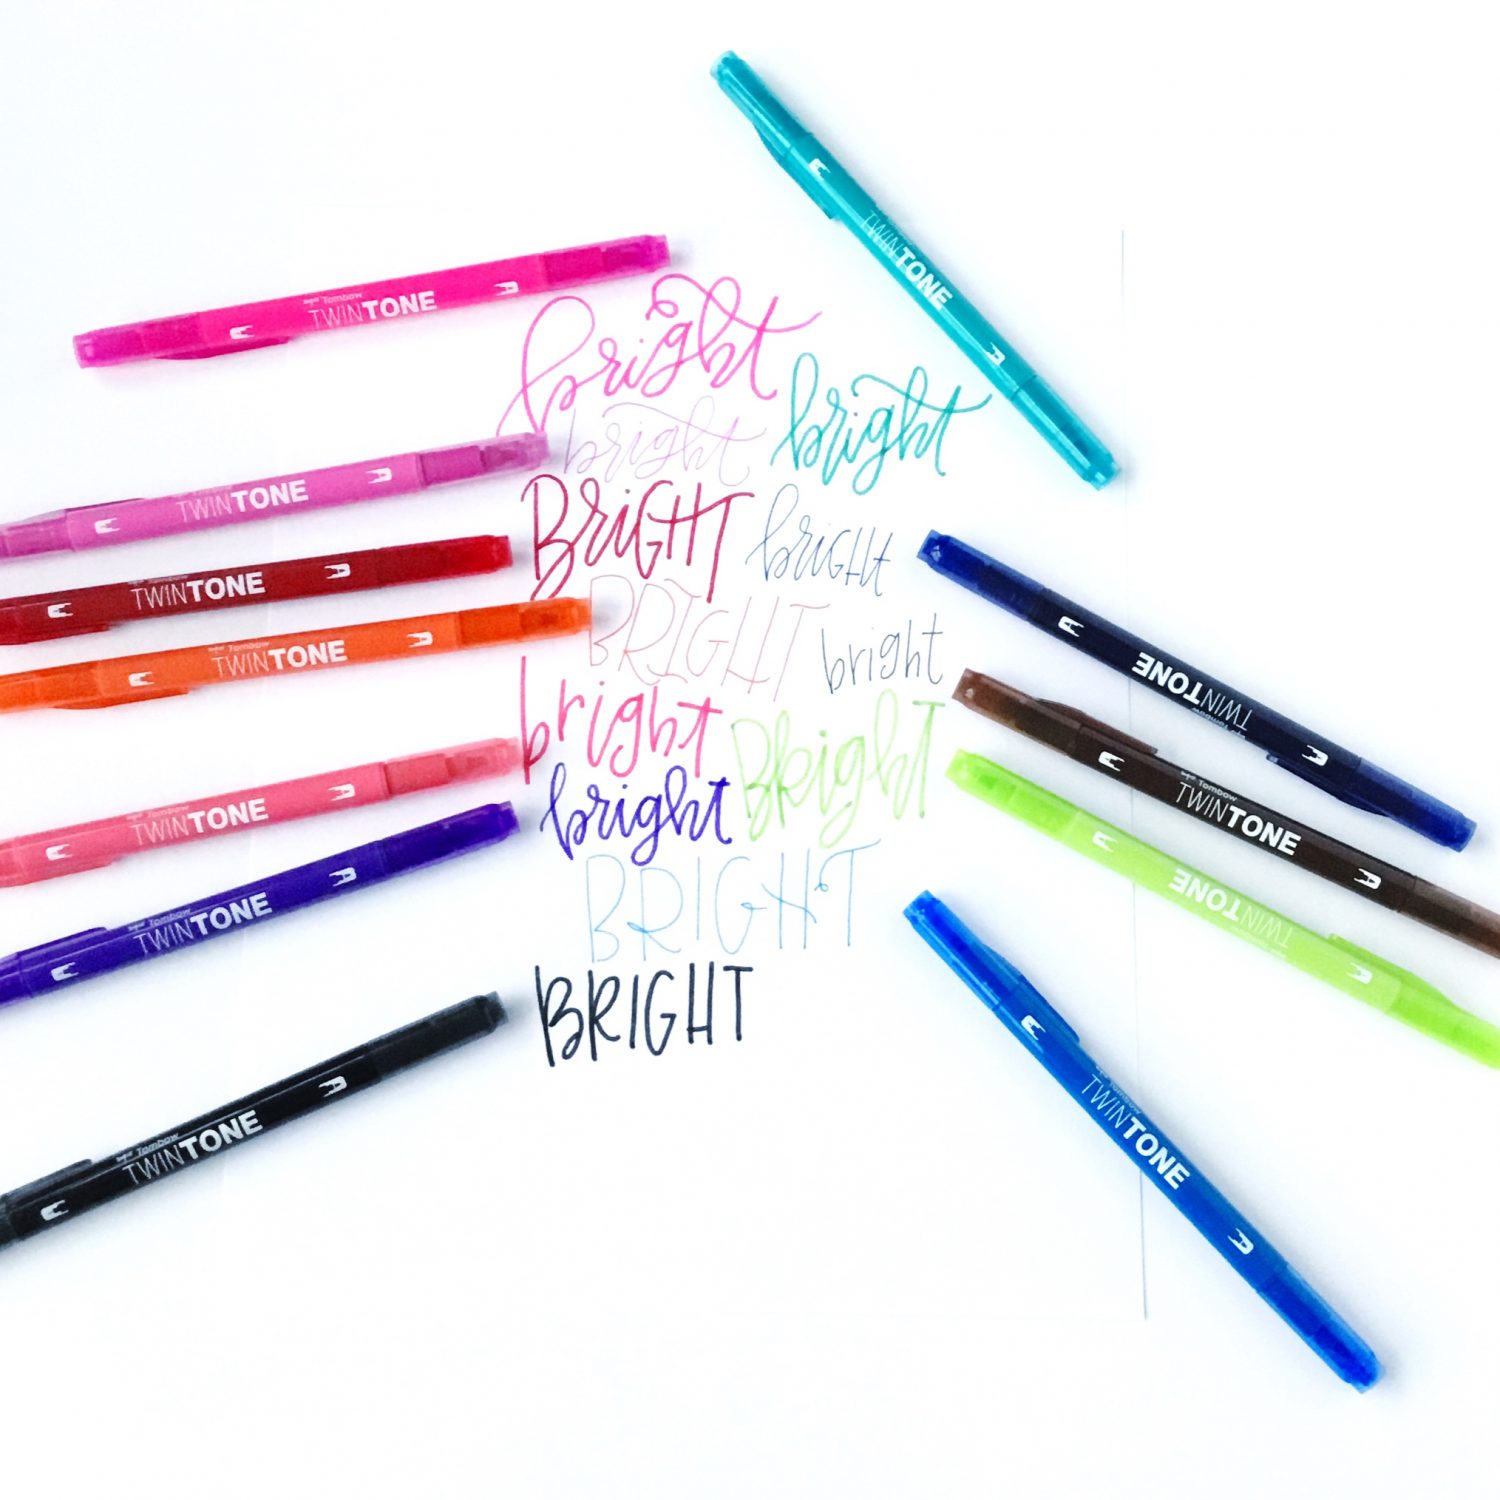 Tombow
TWINTONE
TWINTONE
TWINTONE
TWINTONE
Tombow
TWINTONE
TWINTONE
Tombow
TWINTONE
Tombow
TWINTONE
bright
bright
bright
BRiGHT
briGHt
BRIGHT
bright
bright
BRight
bright
BRIGHT
BRIGHT
TWINTONE
Tombow
TWINTONE
Tombow
TWINTONE
TWINTONE
Tombow
TWINTONE